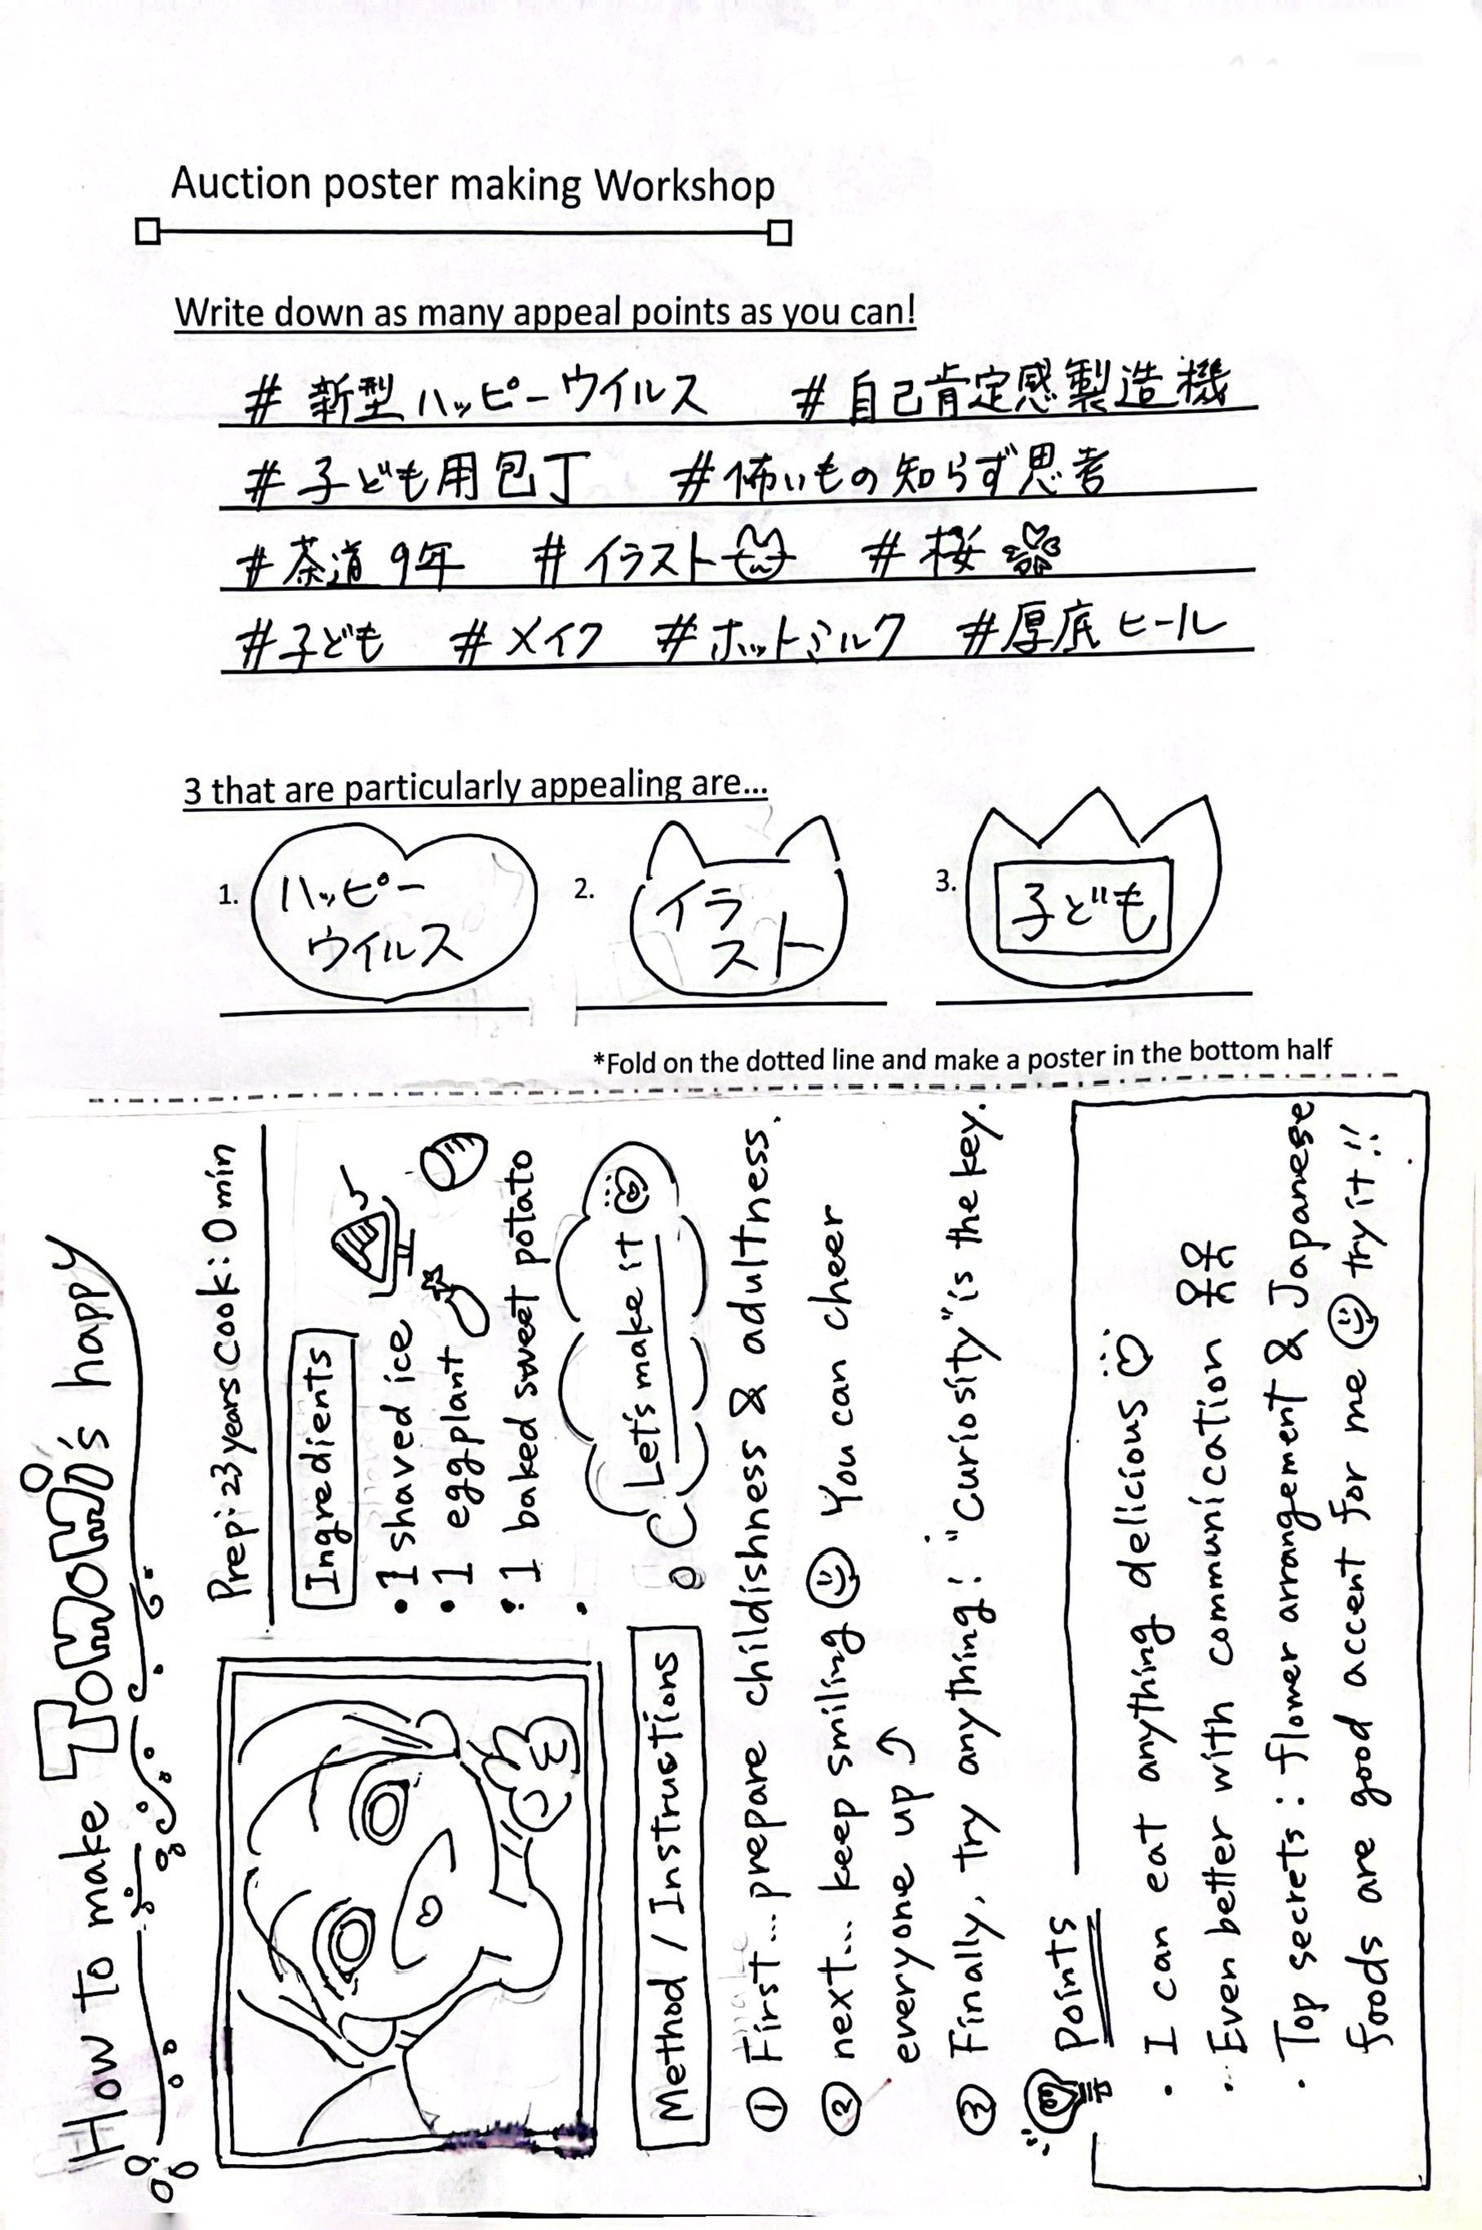 Auction poster making Workshop
Write down as many appeal points as you can!
# 新型ハッピーウイルス # 自己肯定感製造機
# 子ども用包丁 # 怖いもの知らず思考
# 茶道9年 # イラスト # 桜
# 子ども # メイク # ホットミルク # 厚底ヒール
3 that are particularly appealing are...
1. ハッピー
ウイルス
2. イラ
スト
3. 子ども
*Fold on the dotted line and make a poster in the bottom half
How to make ToMoMi's happy
Prep: 23 years Cook: 0 min
Ingredients
• 1 shaved ice
• 1 eggplant
• 1 baked sweet potato
•
Let's make it
Method / Instructions
① First... prepare childishness & adultness.
② next... keep smiling You can cheer
everyone up
③ Finally, try anything! "Curiosity" is the key.
Points
• I can eat anything delicious
• Even better with communication
• Top secrets: flomer arrangement & Japanese
foods are good accent for me try it!!